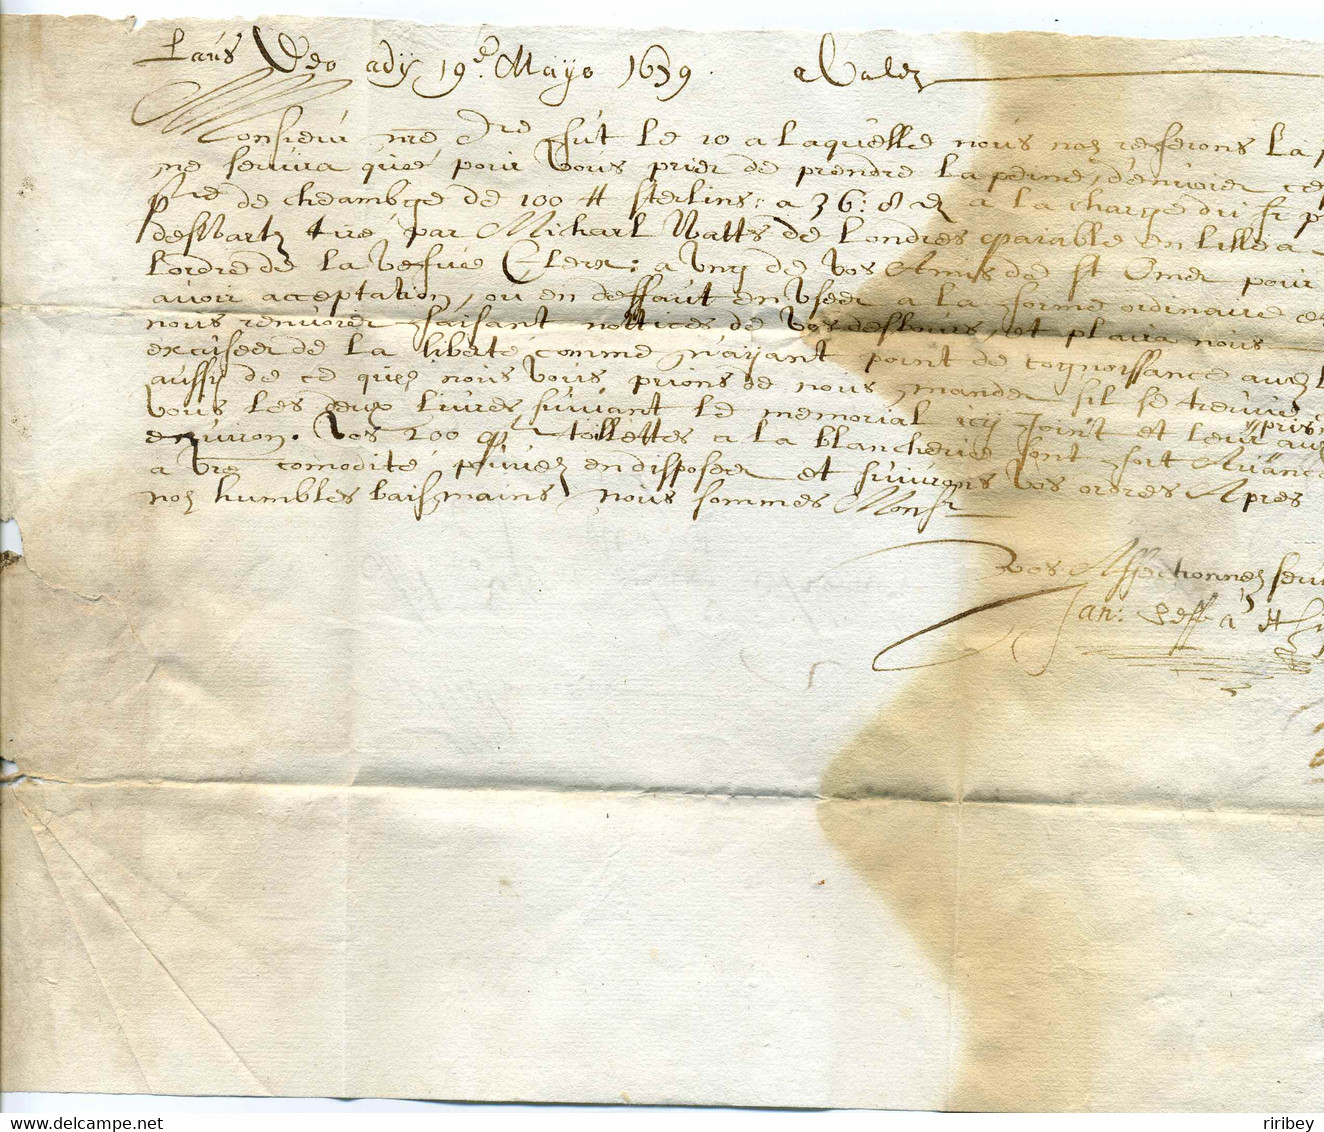 Laus Deo ady 19e Mayo 1659. a Valen
Monsieur nre dre fut le 10 a laquelle nous nos referons La p
ne servira que pour vous prier de prendre la peine, d'envoier ce
lre de cheambge de 100 # sterlins: a 36: 8 a la charge du Sr p
deswartz tiré par Michael Watts de Londres paiable en Lille a
l'ordre de la vesfue Clerx: a vng de vos Amis de St Omer pour
avoir acceptation, ou en deffaut en vser a la forme ordinaire et
nous renvoier faisant nottices de vos desbours, et plaira nous
excuser de la liberté comme n'aijant point de cognoissance avez l
aussij de ce quez nous vous prions de nous mander sil se treuve
vous les deux livres, suivant le memorial icij joint et leur prix
environ. Vos 200 toillettes a la blancherie sont fort Avance
a vre comodité pouvez en disposer et suivrons vos ordres Apres
nos humbles baisemains, nous sommes Monsr
vos Affectionnez serv
Jan:
ririбey